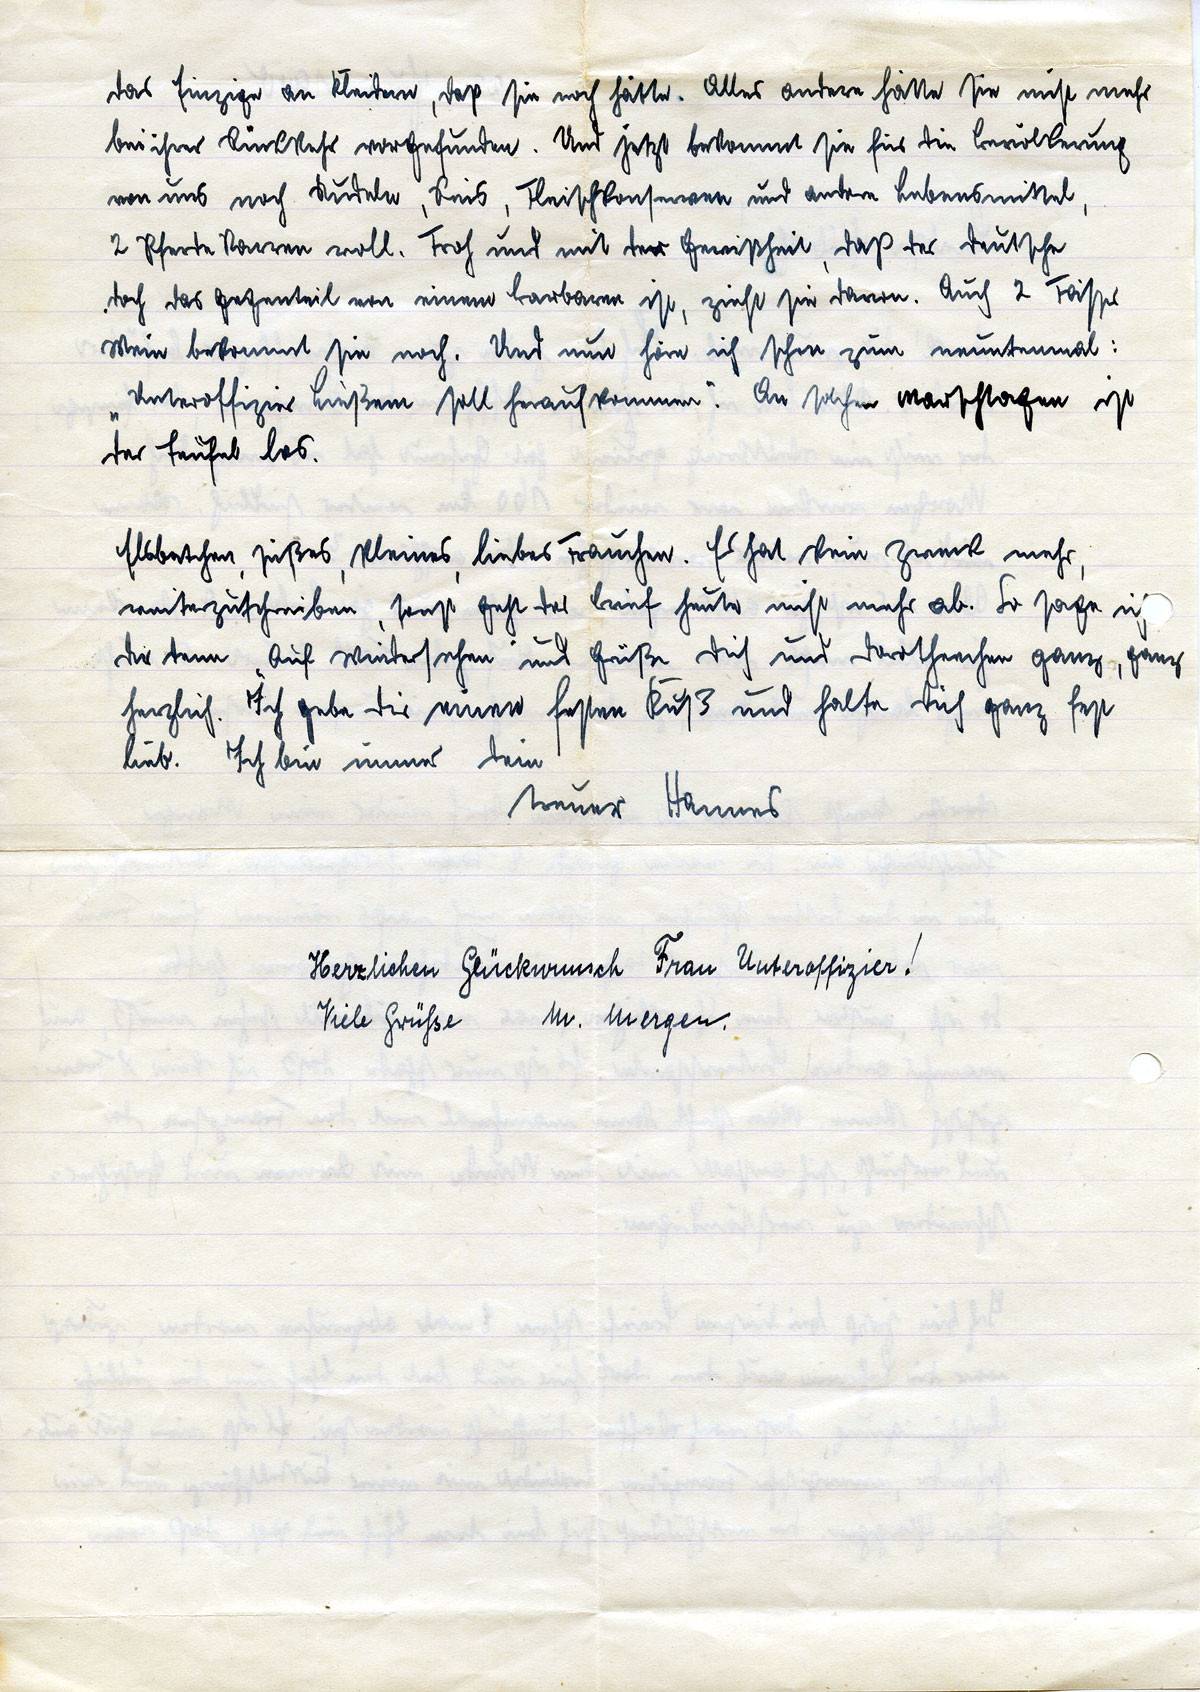 das Einzige an Kleidern, daß sie noch hätte. Alles andere hätte sie nicht mehr
bei ihrer Rückkehr vorgefunden. Und jetzt bekommt sie für die Bevölkerung
von uns noch Nudeln, Reis, Fleischkonserven und andere Lebensmittel,
2 Pferdekarren voll. Froh und mit der Gewißheit, daß der Deutsche
doch das Gegenteil von einem Barbaren ist, zieht sie davon. Auch 2 Fässer
Wein bekommt sie noch. Und nun höre ich schon zum neuntenmal:
„Unteroffizier Ließem soll heraufkommen". An solchen Marschtagen ist
der Teufel los.
Elsbetchen, süßes, kleines, liebes Frauchen. Es hat kein Zweck mehr,
weiterzuschreiben, sonst geht der Brief heute nicht mehr ab. So sage ich
dir denn „Auf Wiedersehen" und Grüße Dich und Dorotheechen ganz, ganz
herzlich. Ich gebe dir einen festen Kuß und halte Dich ganz fest
lieb. Ich bin immer dein
treuer Hannes
Herzlichen Glückwunsch Frau Unteroffizier!
Viele Grüße M. Mergen.